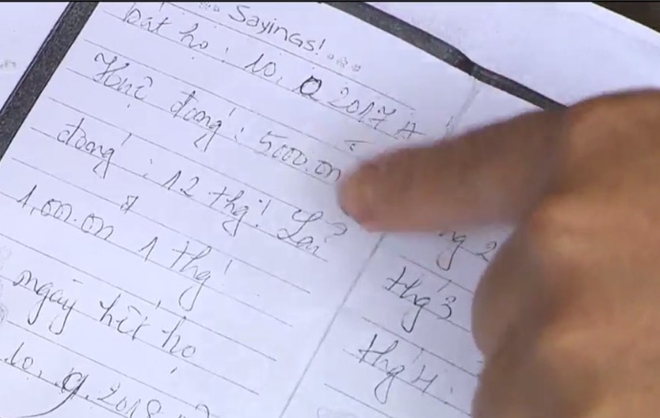 Sayings!
bắt họ: 10, 9 2017
Khê đóng: 5000.000
đóng: 12 thg! Lãi
1.000.000 1 thg!
ngày hết họ
10, 9, 2018
ng 2
thg 3
thg 4